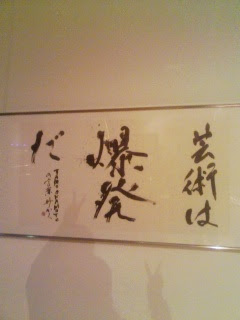 芸術は
爆発
だ